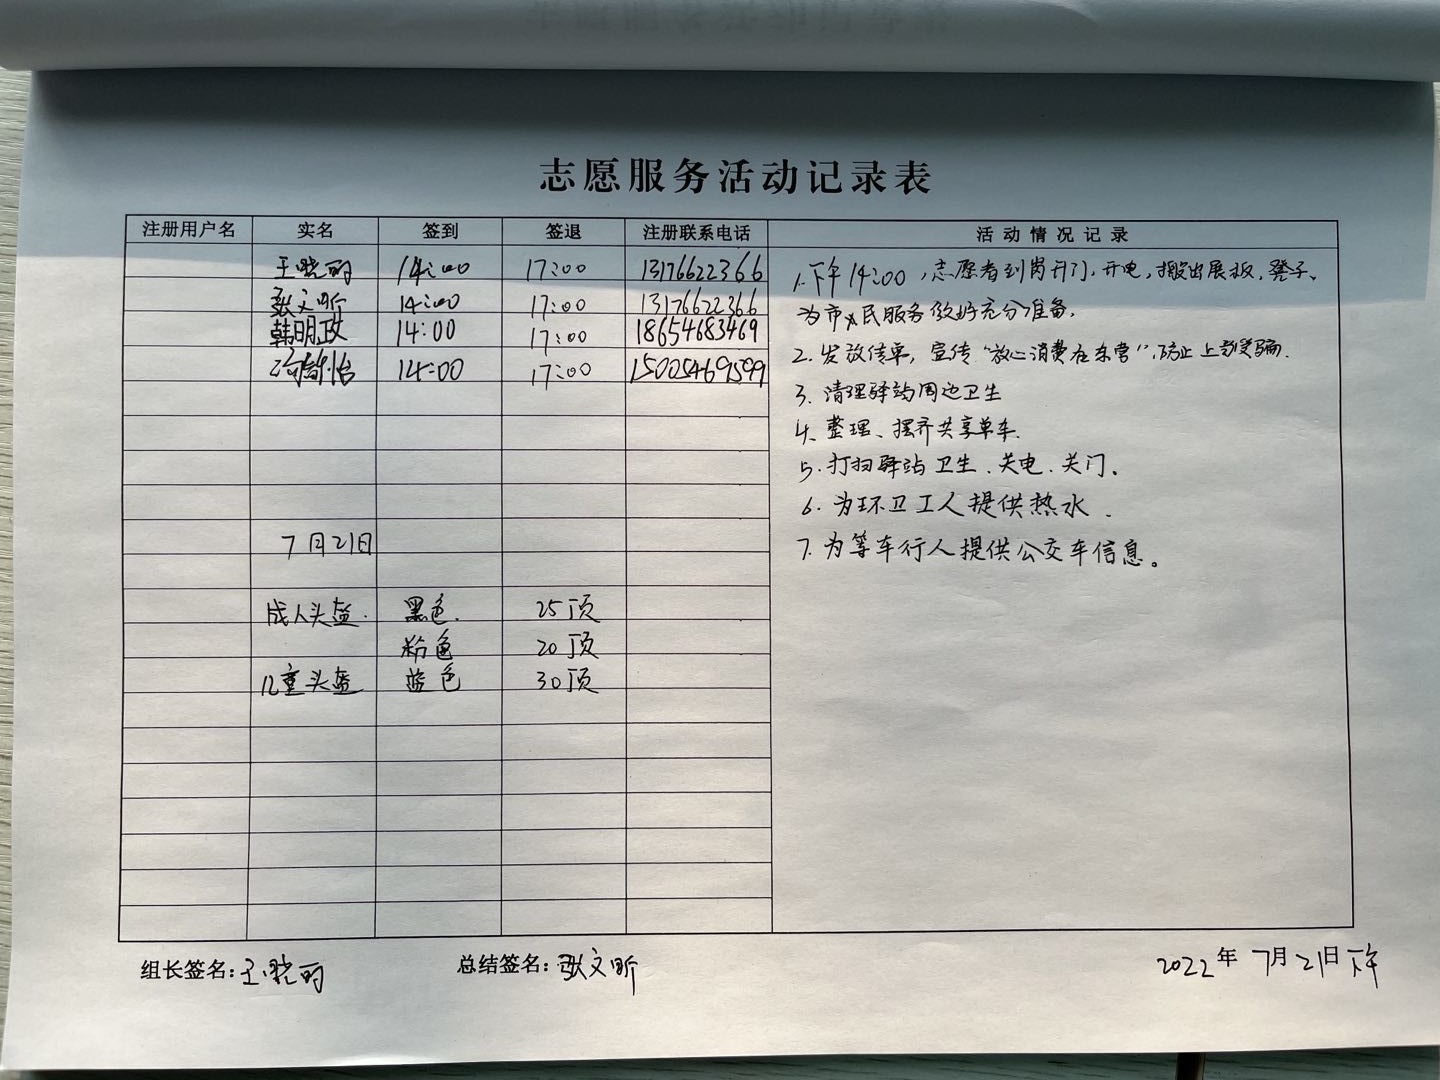 志愿服务活动记录表
注册用户名 实名 签到 签退 注册联系电话 活动情况记录
王晓丽 14:00 17:00 13176622366
张文昕 14:00 17:00 13176622366
韩明政 14:00 17:00 18654683469
14:00 17:00 15005469599
7月21日
成人头盔. 黑色. 25顶
粉色 20顶
儿童头盔 蓝色 30顶
1.下午14:00,志愿者到岗开门,开电,搬出展板,凳子、
为市民服务做好充分准备.
2.发放传单,宣传"放心消费在东营",防止上当受骗.
3.清理驿站周边卫生
4、整理、摆齐共享单车.
5.打扫驿站卫生、关电、关门。
6.为环卫工人提供热水.
7.为等车行人提供公交车信息。
组长签名:王晓丽 总结签名:张文昕 2022年7月21日下午